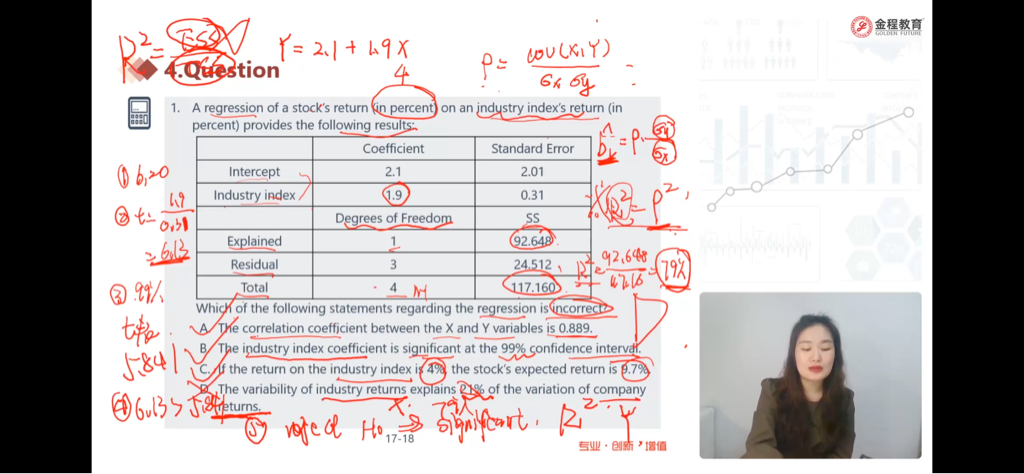 R² = ESS
Y = 2.1 + 1.9X
4
ρ = cov(X,Y) / σx σy =
金程教育
GOLDEN FUTURE
4.Question
1. A regression of a stock's return (in percent) on an industry index's return (in
percent) provides the following results:
Coefficient Standard Error
Intercept 2.1 2.01
Industry index 1.9 0.31
Degrees of Freedom SS
Explained 1 92.648
Residual 3 24.512
Total 4 117.160
Which of the following statements regarding the regression is incorrect?
A. The correlation coefficient between the X and Y variables is 0.889.
B. The industry index coefficient is significant at the 99% confidence interval.
C. If the return on the industry index is 4%, the stock's expected return is 9.7%.
D. The variability of industry returns explains 21% of the variation of company
returns.
① b1=0
② t = 1.9 / 0.31
= 6.13
③ 99%
t
5.841
④ 6.13 > 5.841
⑤ reject H₀ ⇒ significant.
79%
X
R²
Y
b̂₁ = ρ · σy / σx
R² = ρ²
R² = 92.648 / 117.16 = 79%
17-18
专业·创新·增值